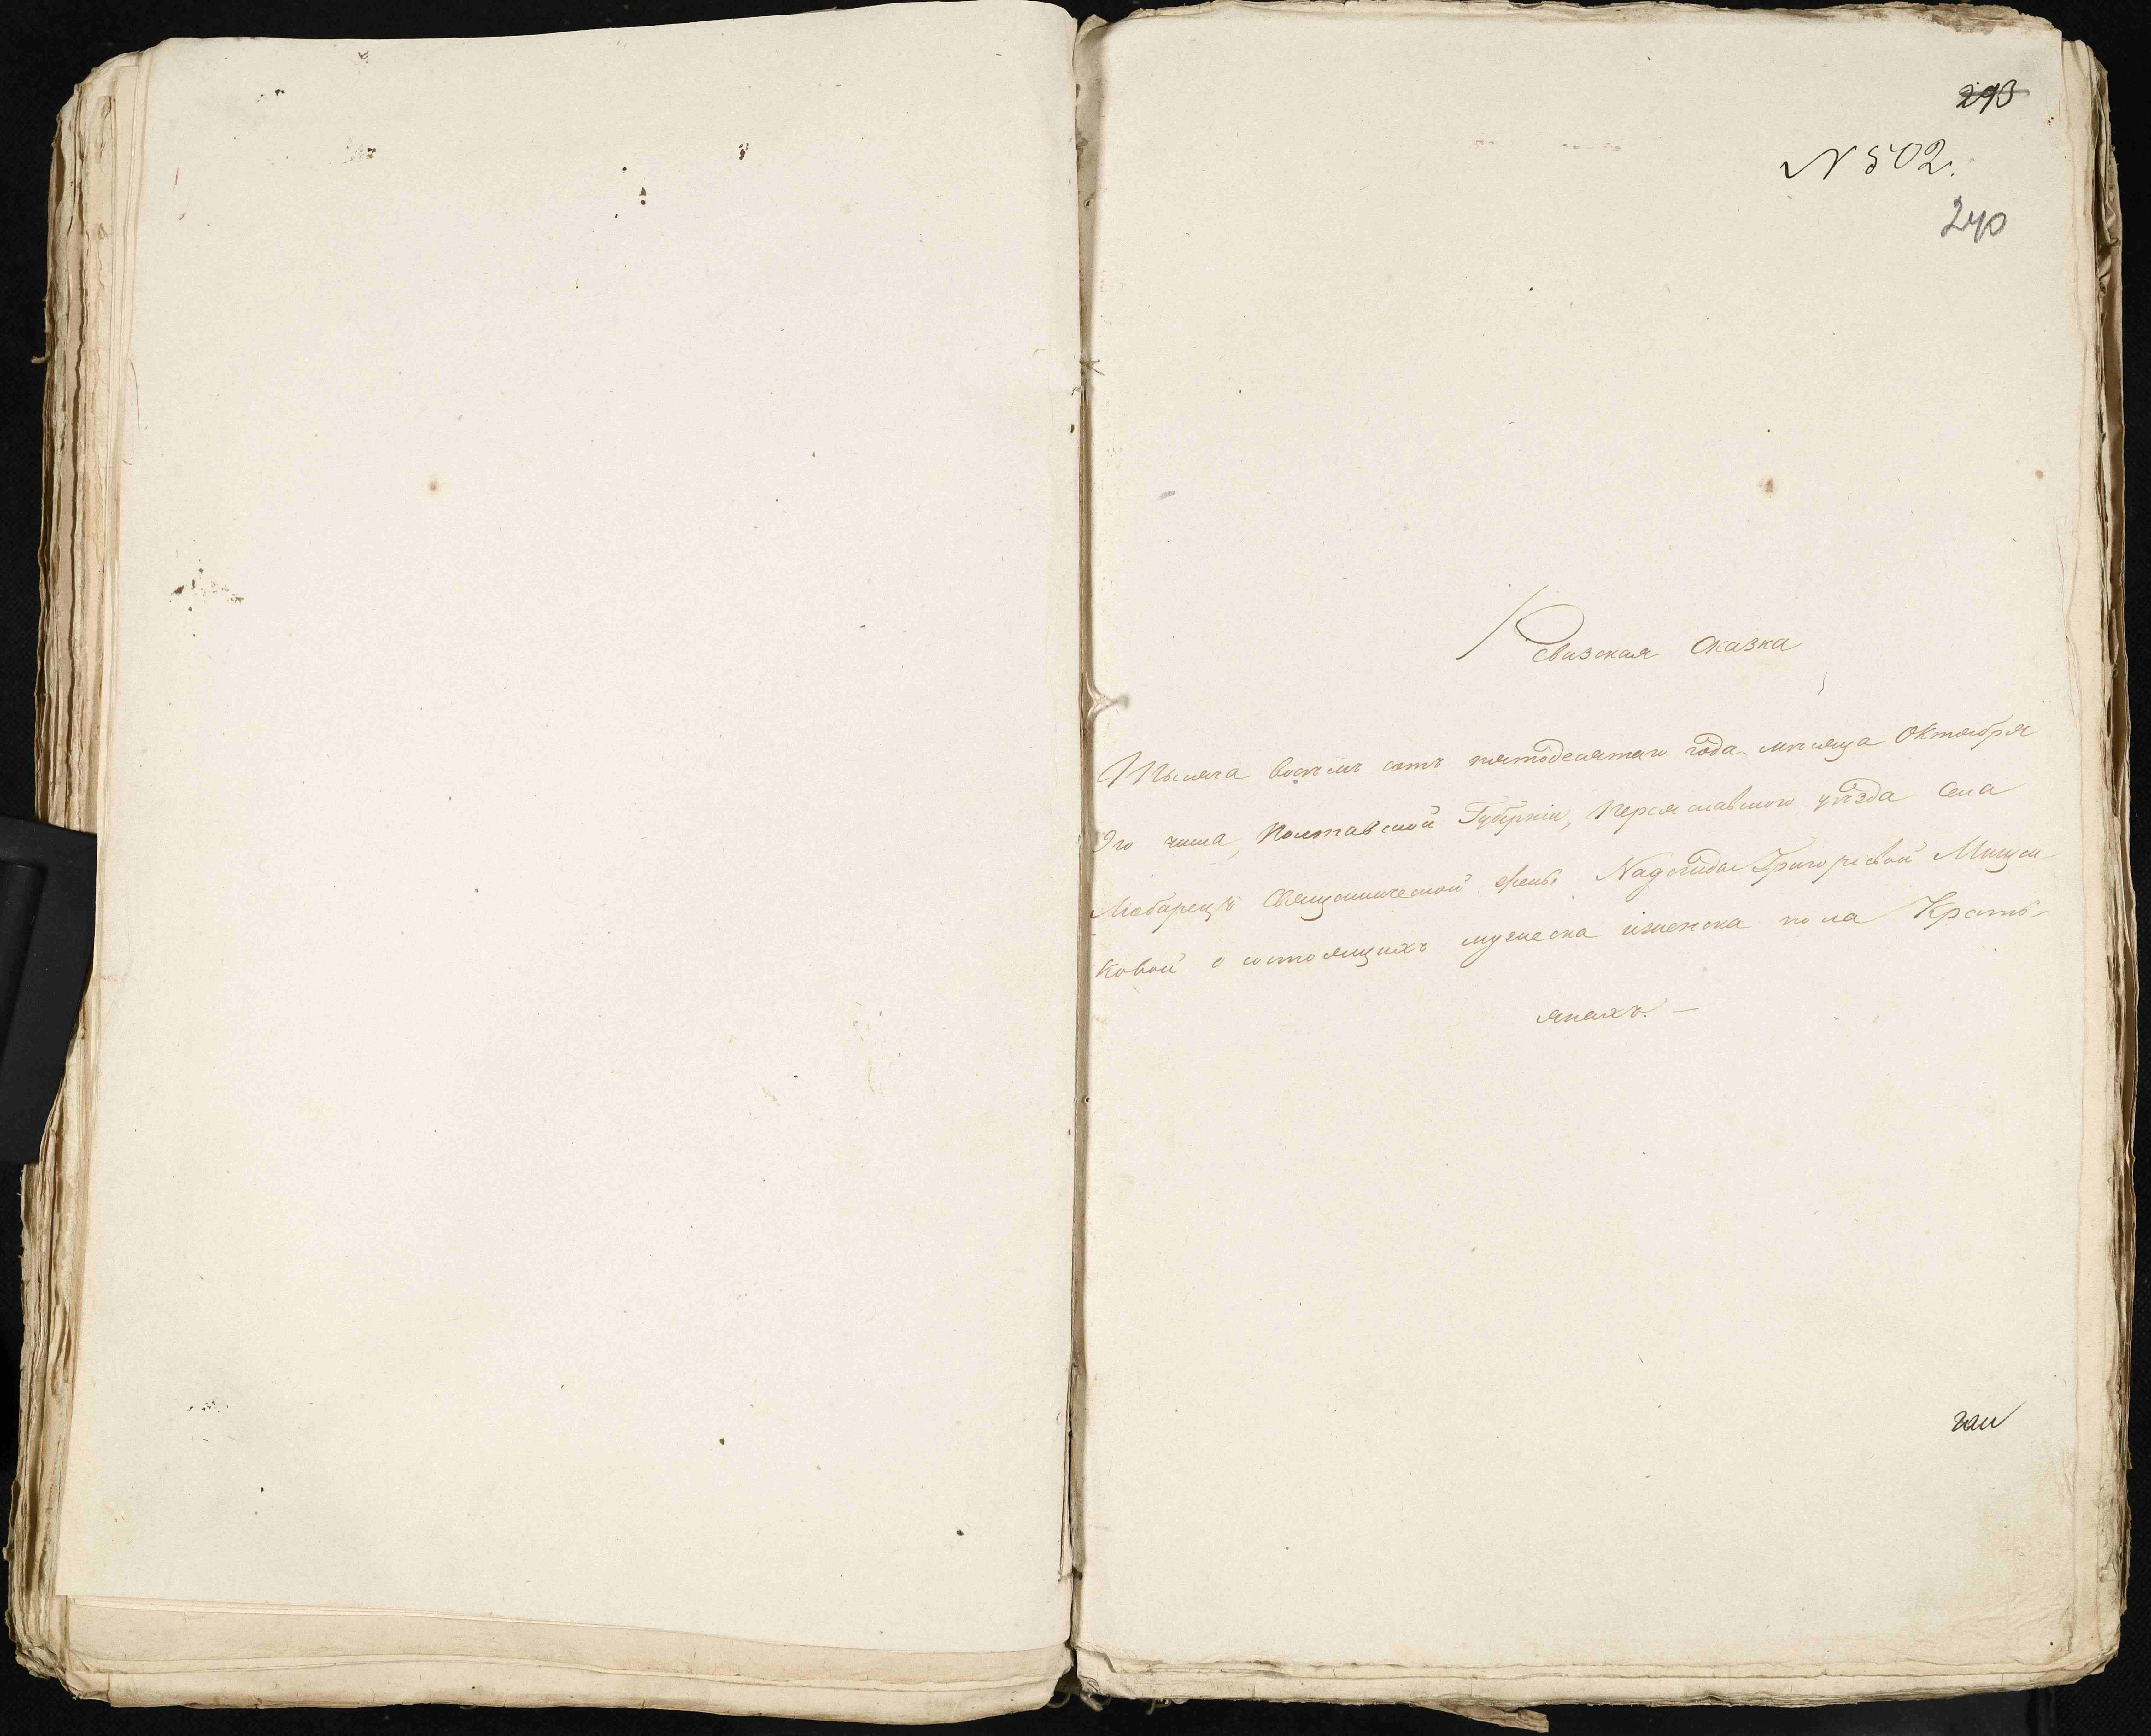 293
N 502.
240
Ревизская Сказка
Тысяча восемь сотъ пятодесятаго года месяца Октября
9го числа, Полтавской Губерніи, Переяславского уѣзда Села
Любарецъ Священнической жены Надежды Григоріевой Мищен-
ковой о состоящихъ мужеска иженска пола Крестъ-
янахъ. —